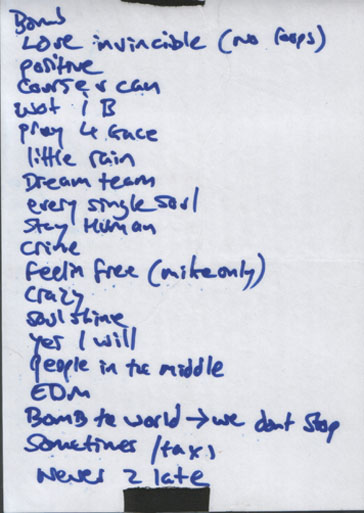 Bomb
Love invincible (no loops)
positive
course u can
wot i B
pray 4 Grace
little rain
Dream team
every single soul
Stay Human
Crime
Feelin free (mike only)
Crazy
soulshine
yes I will
people in the middle
EDM
BOMB the world → we dont stop
Sometimes /taxi
Never 2 late